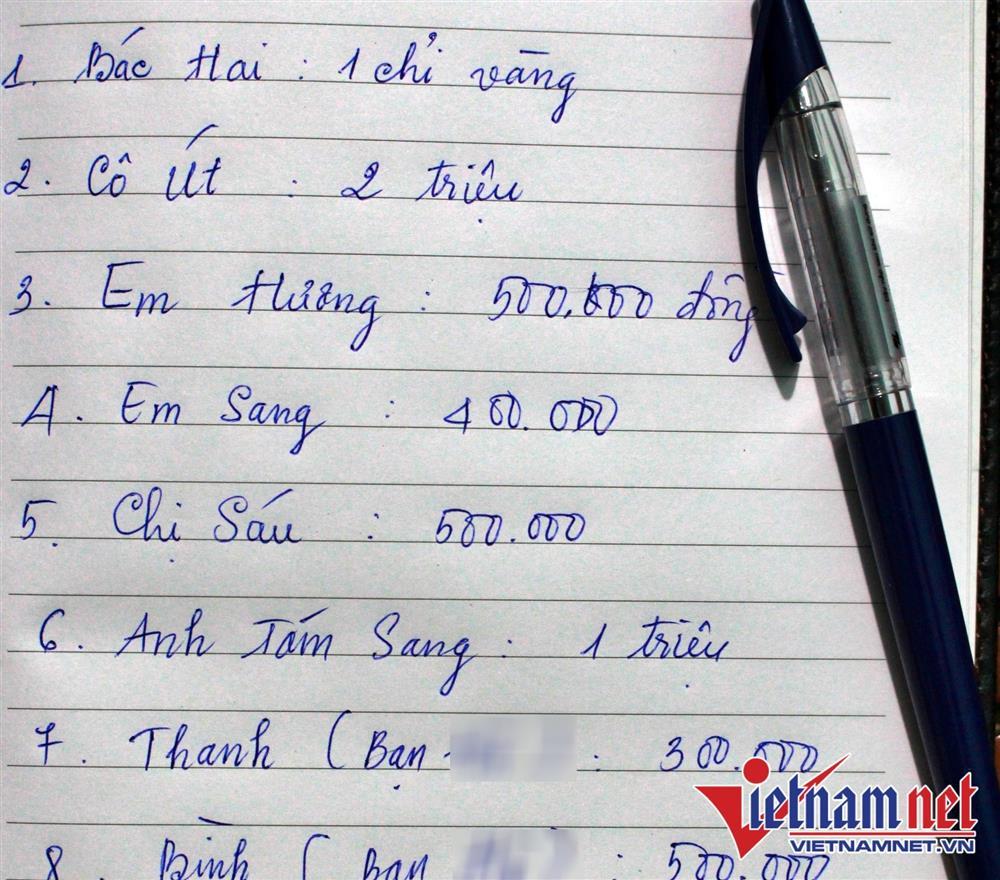 1. Bác Hai : 1 chỉ vàng
2. Cô Út : 2 triệu
3. Em Hương : 500.000 đồng
4. Em Sang : 400.000
5. Chị Sáu : 500.000
6. Anh Tám Sang : 1 triệu
7. Thanh ( Bạn : 300.000
8. Bình ( Bạn : 500.000
Vietnamnet
VIETNAMNET.VN